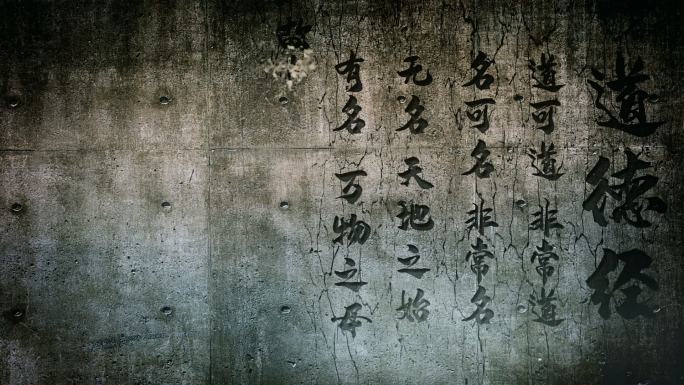 道德经
道可道 非常道
名可名 非常名
无名 天地之始
有名 万物之母
故